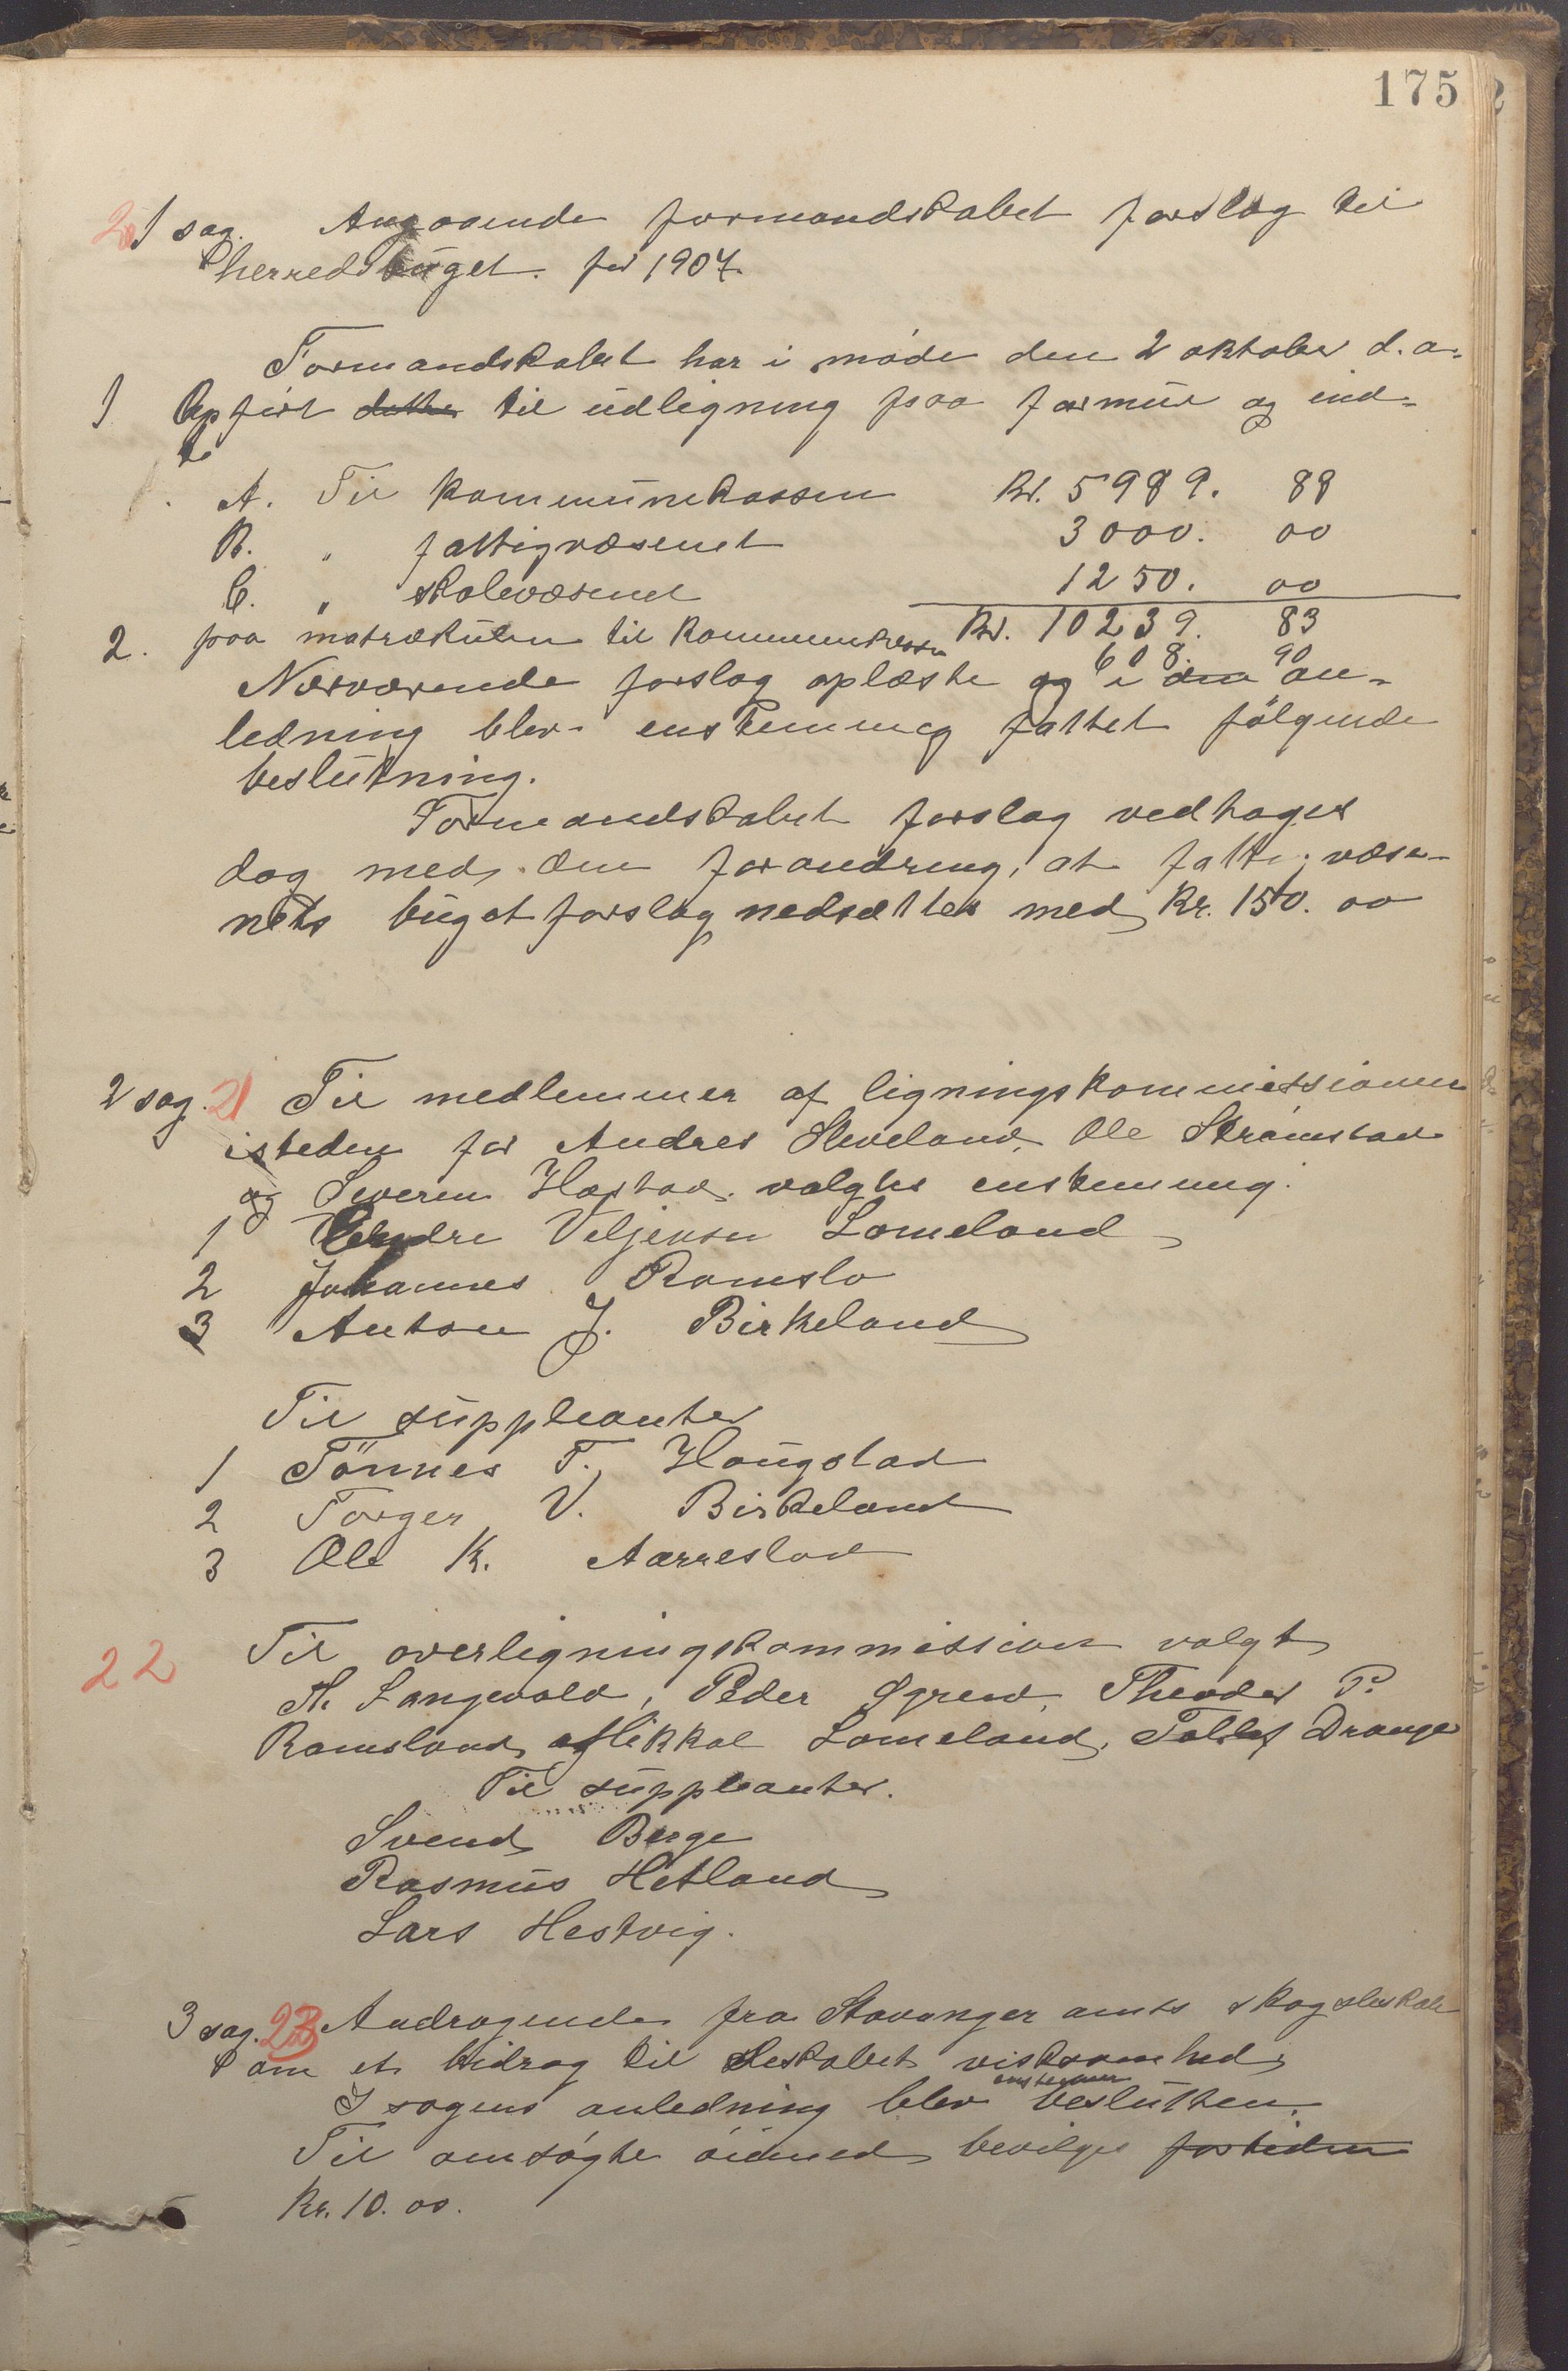 175
20 1 sag. Angaaende formandskabet forslag til
herredsbuget for 1907.
Formandskabet har i møde den 2 oktober d.a.
1 Opført dette til udligning paa formue og ind-
A. Til kommunekassen Kr. 5989. 88
B. " fattigvæsenet 3000. 00
C. " skolevæsenet 1250. 00
Kr. 10239. 83
2. paa matrækulen til kommunekassen 608. 90
Nærværende forslag oplæste og i den an-
ledning blev enstemmig fattet følgende
beslutning.
Formandskabet forslag vedtages
dog med den forandring, at fattigvæse-
nets bugetforslag nedsættes med Kr. 150. 00
2 sag. 21 Til medlemmer af ligningskommissionen
isteden for Andres Sleveland, Ole Strømstad
og Severin Hæstad valgtes enstemmig.
1 Veljensen Lomeland
2 Johannes Ramslo
3 Anton J. Birkeland
Til suppleanter
1 Tönnes T. Haugstad
2 Torger V. Birkeland
3 Ole K. Aarrestad
22 Til overligningskommission valgt
Langevald, Peder Øgreid, Theodor P.
Ramsland, Mikkal Lomeland, Tollef Drange
Til suppleanter.
Svend Berge
Rasmus Hetland
Lars Hestvig.
3 sag. 23 Andragende fra Stavanger amts skogselskab
om et bidrag til selskabet virksomhed
I sagens anledning blev enstemmi besluttem.
Til omsøgte øiemed bevilges fortiden
Kr. 10. 00.